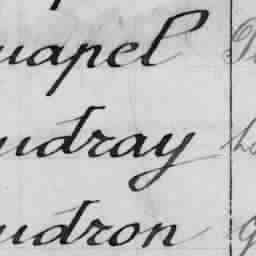 uapel
udray
udron